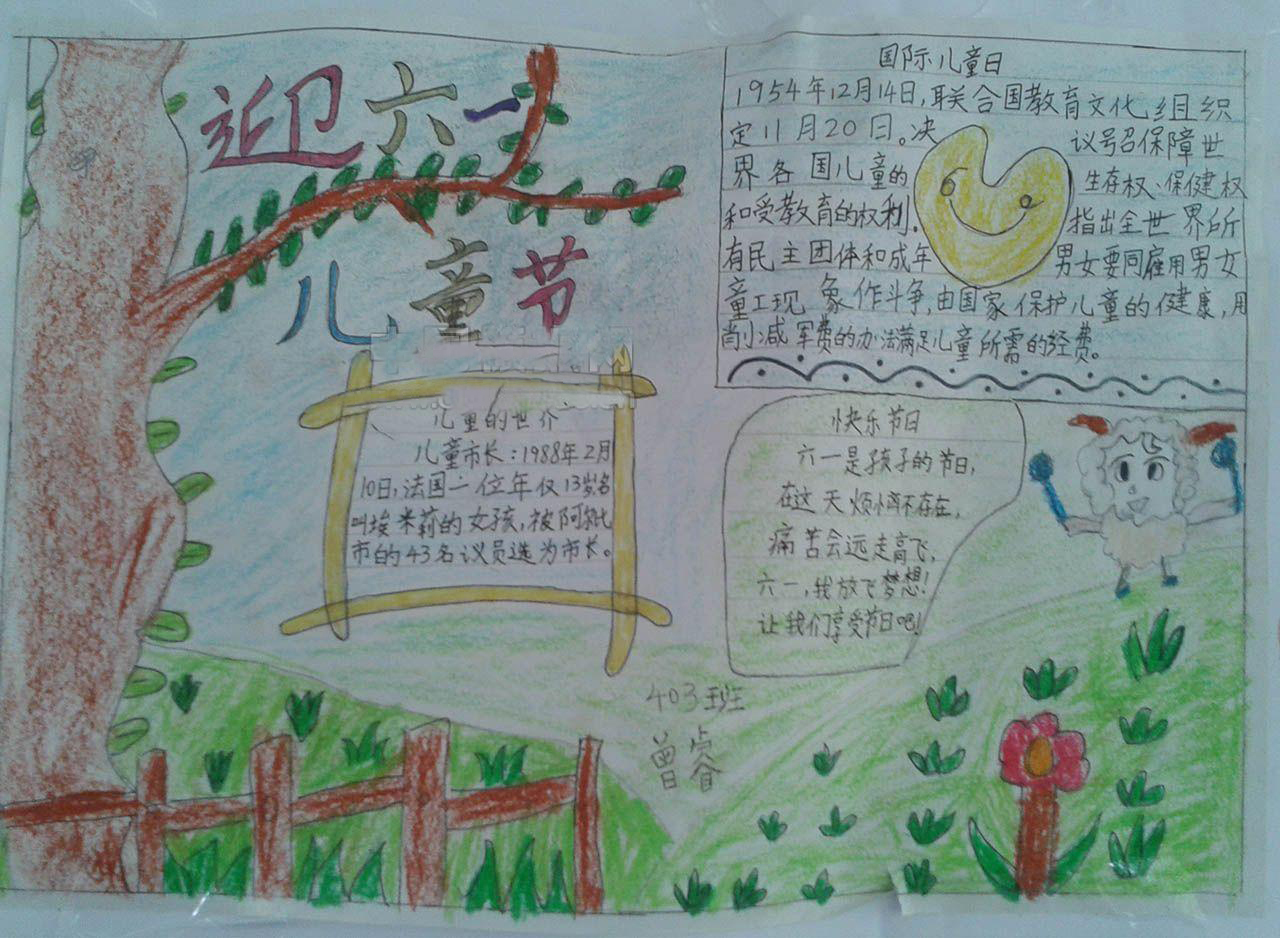 迎六一
儿童节
国际儿童日
1954年12月14日,联合国教育文化组织
定11月20日。决议号召保障世
界各国儿童的生存权、保健权
和受教育的权利。指出全世界所
有民主团体和成年男女要同雇用男女
童工现象作斗争,由国家保护儿童的健康,用
削减军费的办法满足儿童所需的经费。
儿童的世界
儿童市长:1988年2月
10日,法国一位年仅13岁名
叫埃米莉的女孩,被阿
市的43名议员选为市长。
快乐节日
六一是孩子的节日,
在这天烦恼不存在,
痛苦会远走高飞,
六一,我放飞梦想!
让我们享受节日吧!
403班
曾睿